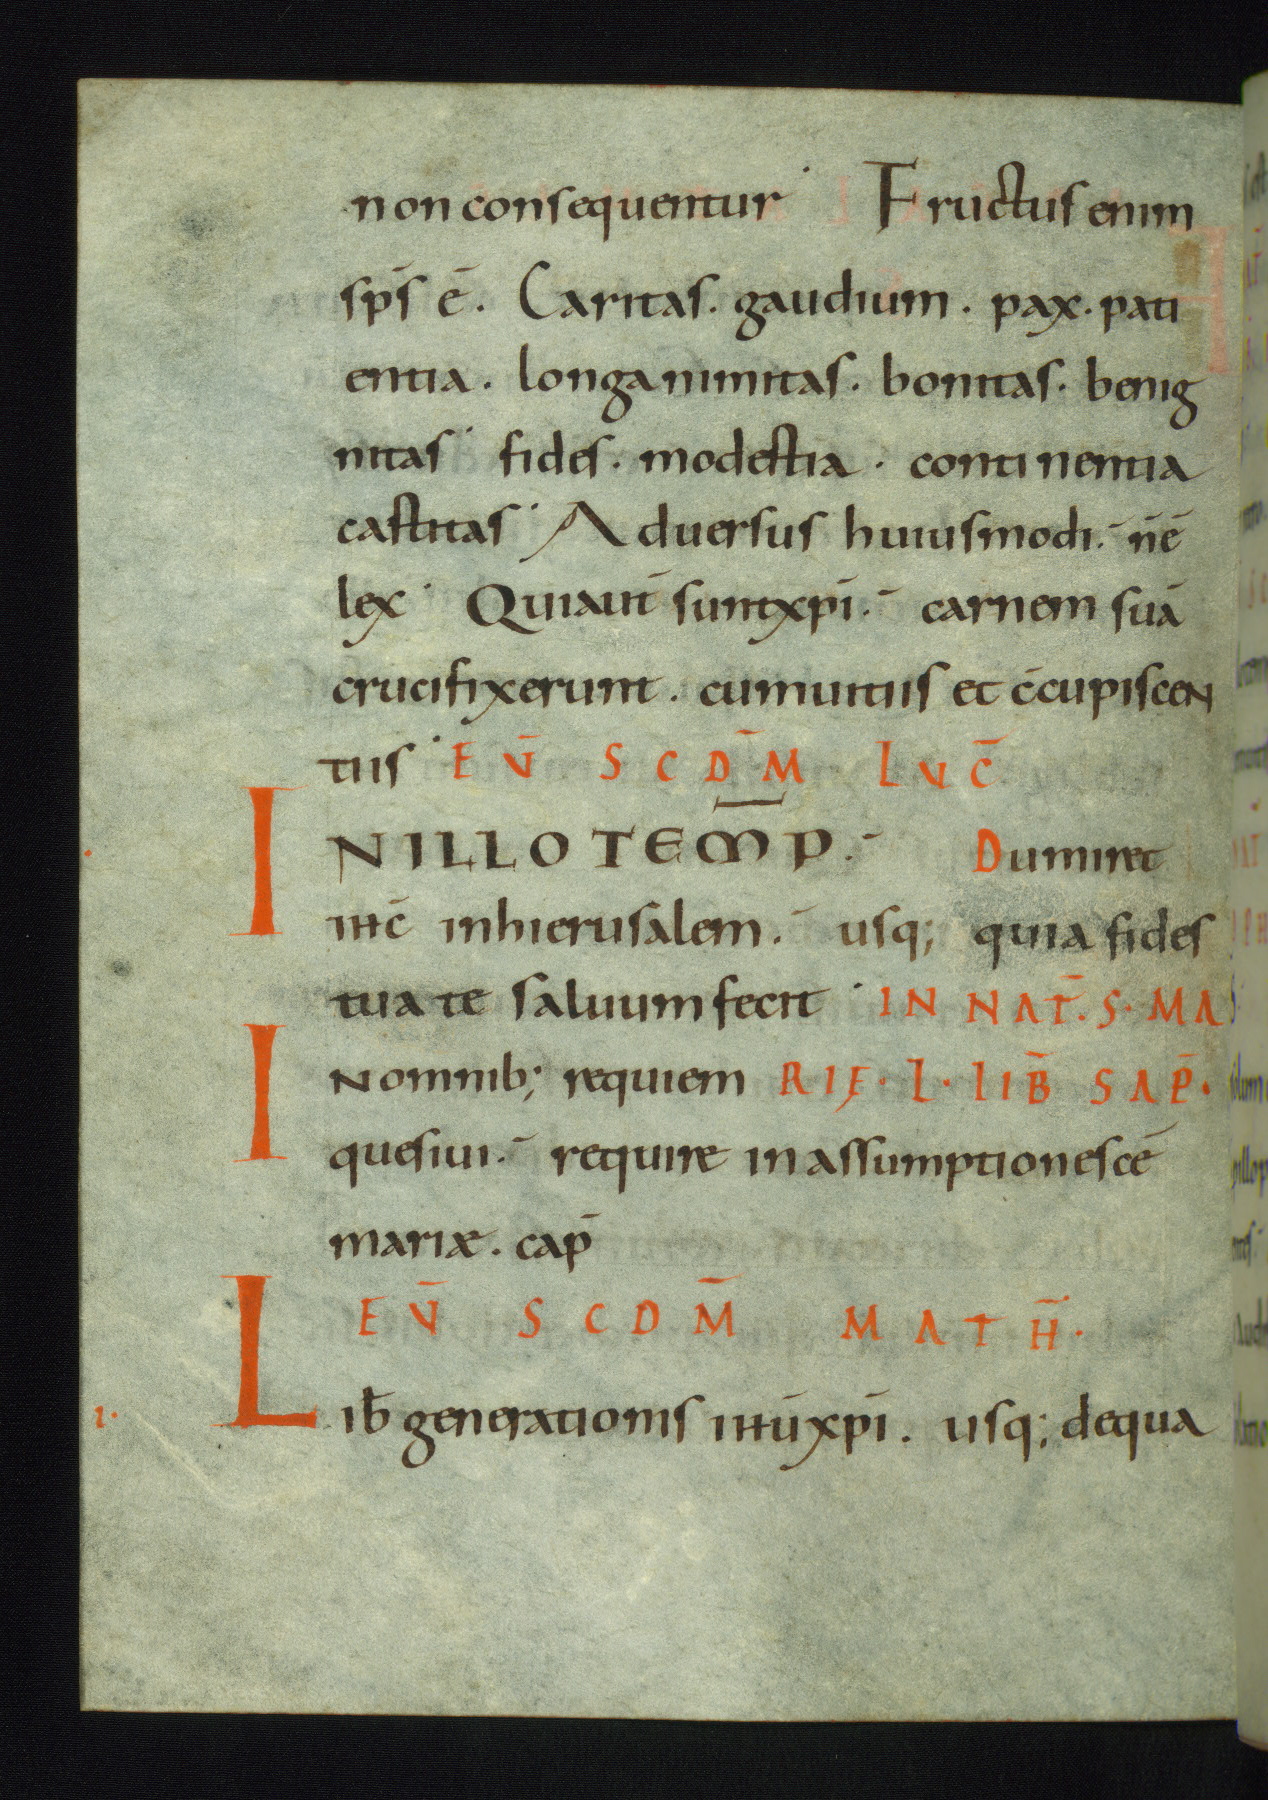 non consequentur· Fructus enim
sp̄s ē. Caritas. gaudium. pax. pati
entia. longanimitas. bonitas. benig
nitas· fides. modestia. continentia
castitas· Aduersus huiusmodi. n̄ ē
lex· Qui aut̄ sunt xp̄i. carnem suā
crucifixerunt. cum uitiis et c̄cupiscen
tiis· EV̄ SCDM̄ LVC̄
IN ILLO TEMP̄. Dum iret
ih̄c in hierusalem. usq; quia fides
tua te saluum fecit· IN NAT̄. S. MA
In omnib; requiem RIĘ. L. LIB̄ SAP̄.
quesiui. require in assumptione scē
mariæ. cap̄
EV̄ SCDM̄ MATH̄.
1. Lib̄ generationis ih̄ū xp̄i. usq; de qua